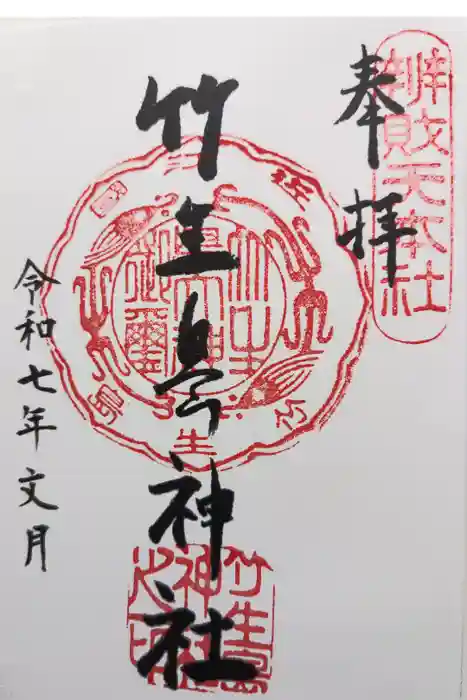 奉拝
辨財天本社
竹生島神社
令和七年文月
竹生島
神社
之印